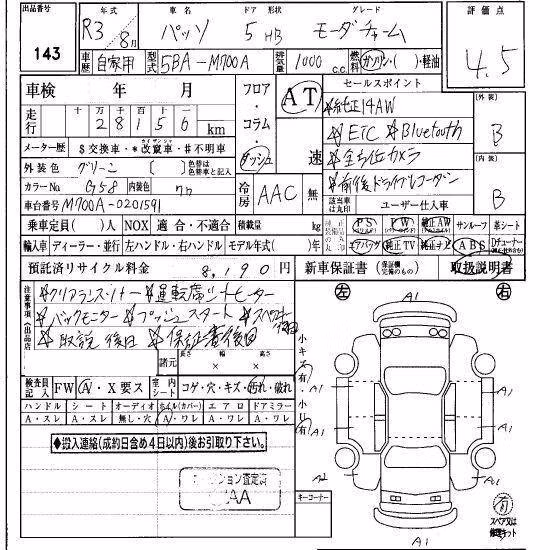 出品番号 143
年式 R3年8月
車名 パッソ
ドア 形状 5 HB
グレード モーダ チャーム
評価点 4.5
車歴 自家用
型式 5BA-M700A
排気量 1000 c.c.
燃料 ガソリン・軽油
車検 年 月
フロア・コラム・ダッシュ
AT 速
セールスポイント
☆純正14AW
☆ETC ☆Bluetooth
☆全方位カメラ
☆前後ドライブレコーダー
外装 B
内装 B
走行 十万 2 万 8 千 1 百 5 十 6 km
メーター歴 $交換車・*改竄車・#不明車
外装色 グリーン ( ) 色替は色替車と記入
カラーNo G58 内装色 クロ
車台番号 M700A-0201591
冷房 AAC
無 該当車は丸印
ユーザー仕入車
乗車定員( )人 NOX 適合・不適合 積載量 kg
輸入車 ディーラー・並行 左ハンドル・右ハンドル モデル年式( )年
PS PW 純正AW サンルーフ 革シート
エアバッグ 純正TV 純正ナビ ABS
預託済リサイクル料金 8,190円
新車保証書 (保証継承可能のもの) 取扱説明書
注意事項(出品店)
☆クリアランスソナー ☆運転席シートヒーター
☆バックモニター ☆プッシュスタート ☆スペアキー後日
☆取説 後日 ☆保証書後日
諸元 長さ 幅 高さ
検査員記入 FW A・X要ス
室内シート コゲ・穴・キズ・汚れ・破れ
ハンドル シート オーディオ ホイル(カバー) エアロ ドアミラー
A・スレ A・スレ 無し・穴 A・ワレ A・ワレ A・ワレ
◆搬入連絡(成約日含め4日以内)後お引取り下さい。◆
オークション査定済
AA
小キズ有
小凹有
キーコーナー
左 A1 右
A1
A1 A1
A2 A1
A1
有
スペアタイヤ又は修理キット